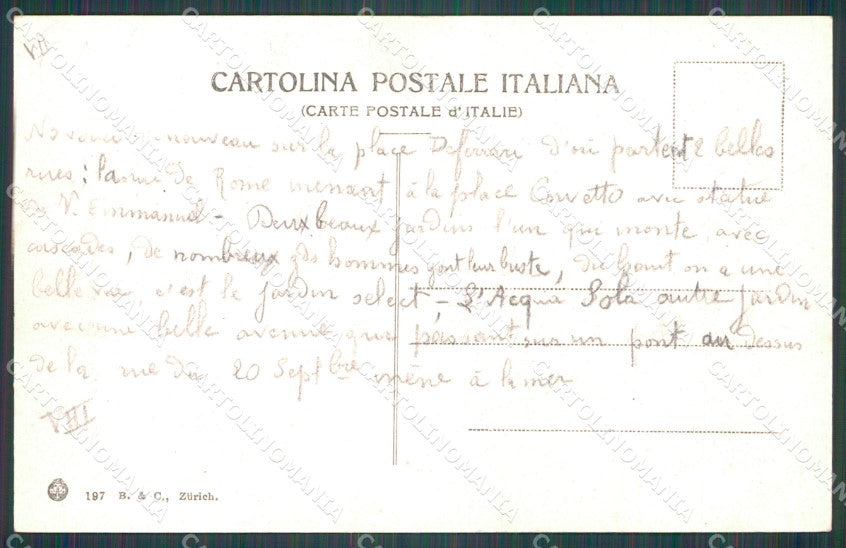 VII
CARTOLINA POSTALE ITALIANA
(CARTE POSTALE d'ITALIE)
Ns voici nouveau sur la place Deferrari d'où partent 2 belles
rues : la rue de Rome menant à la place Corvetto avec statue
V. Emmanuel - Deux beaux jardins l'un qui monte avec
cascades, de nombreux gds hommes y ont leur buste, du haut on a une
belle vue, c'est le jardin select, - L'Acqua Sola autre jardin
avec une belle avenue qui passant sur un pont au dessus
de la rue du 20 Septbre mène à la mer
VIII
197 B. & C., Zürich.
CARTOLINOMANIA